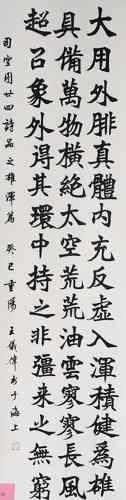 大用外腓真體内充反虚入渾積健為雄
具備萬物橫絕太空荒荒油雲寥寥長風
超以象外得其環中持之非彊來之無窮
司空圖廿四詩品之雄渾篇 癸巳重陽 王儀偉書于海上